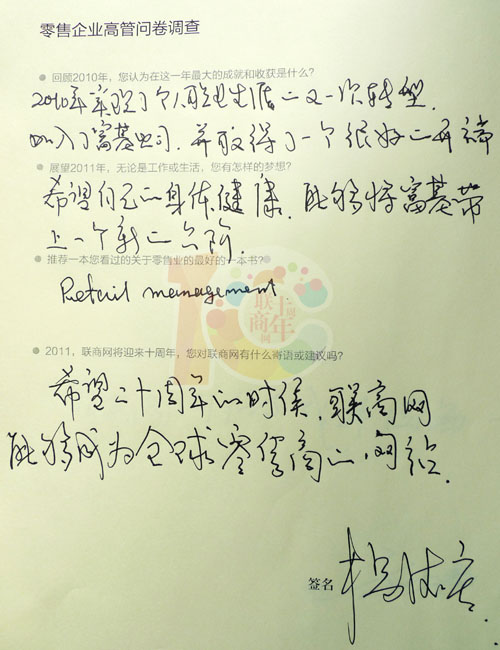 零售企业高管问卷调查
● 回顾2010年，您认为在这一年最大的成就和收获是什么？
2010年实现了个人职业生涯的又一次转型.
加入了富基公司.并取得了一个很好的开端
● 展望2011年，无论是工作或生活，您有怎样的梦想？
希望自己的身体健康.能够将富基带
上一个新的台阶.
● 推荐一本您看过的关于零售业的最好的一本书？
Retail management
联商网
十周年
● 2011，联商网将迎来十周年，您对联商网有什么寄语或建议吗？
希望二十周年的时候，联商网
能够成为全球零售商的网站.
签名